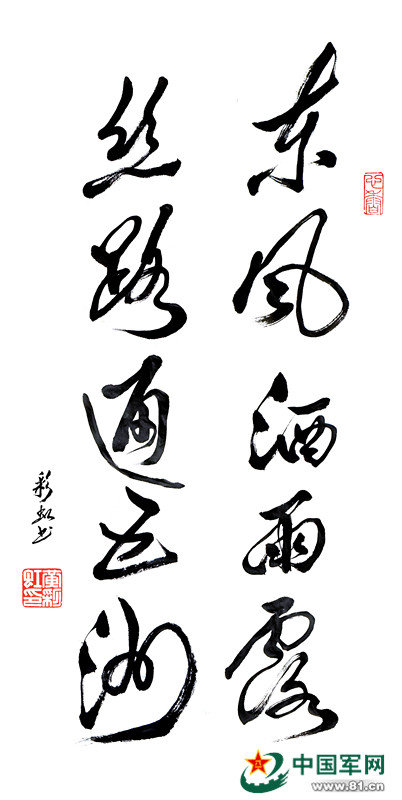 东风洒雨露
丝路通五洲
彩虹书
心香
黄彩虹印
中国军网
www.81.cn